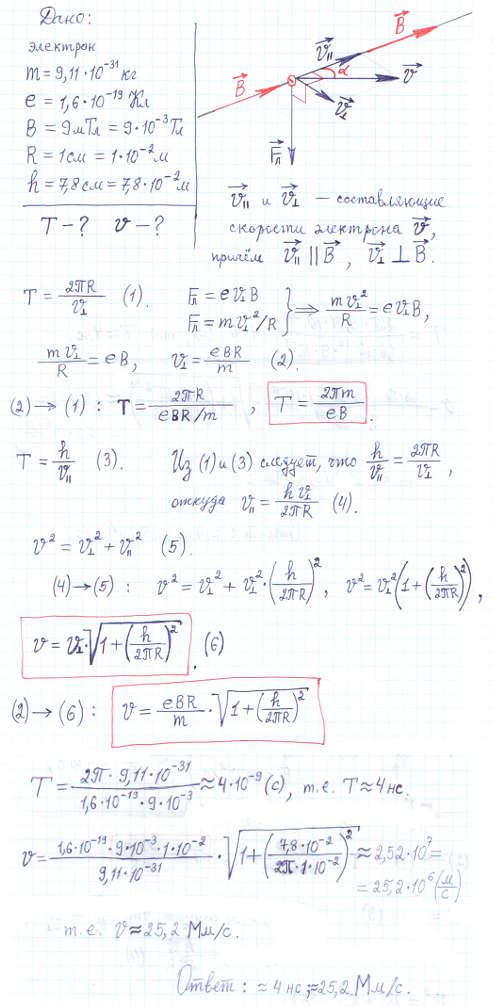 Дано:
электрон
m = 9,11·10⁻³¹ кг
e = 1,6·10⁻¹⁹ Кл
B = 9 мТл = 9·10⁻³ Тл
R = 1 см = 1·10⁻² м
h = 7,8 см = 7,8·10⁻² м
T - ?   v - ?
B⃗   v⃗∥   B⃗   α   v⃗   v⃗⊥   F⃗л
v⃗∥ и v⃗⊥ — составляющие
скорости электрона v⃗,
причём v⃗∥ ∥ B⃗, v⃗⊥ ⊥ B⃗.
T = 2πR/v⊥ (1).   Fл = e v⊥ B   Fл = m v⊥²/R } ⇒ m v⊥²/R = e v⊥ B,
m v⊥/R = eB,   v⊥ = eBR/m (2).
(2) → (1) : T = 2πR/(eBR/m) ,   T = 2πm/eB .
T = h/v∥ (3).   Из (1) и (3) следует, что h/v∥ = 2πR/v⊥ ,
откуда v∥ = h v⊥/2πR (4).
v² = v⊥² + v∥² (5).
(4) → (5) : v² = v⊥² + v⊥²·(h/2πR)² ,   v² = v⊥²(1 + (h/2πR)²) ,
v = v⊥·√(1 + (h/2πR)²) . (6)
(2) → (6) : v = eBR/m · √(1 + (h/2πR)²)
T = 2π · 9,11·10⁻³¹/(1,6·10⁻¹⁹ · 9·10⁻³) ≈ 4·10⁻⁹ (с), т.е. T ≈ 4 нс.
v = 1,6·10⁻¹⁹·9·10⁻³·1·10⁻²/(9,11·10⁻³¹) · √(1 + (7,8·10⁻²/(2π·1·10⁻²))²) ≈ 2,52·10⁷ =
= 25,2·10⁶ (м/с)
т.е. v ≈ 25,2 Мм/с.
Ответ: ≈ 4 нс; ≈ 25,2 Мм/с.